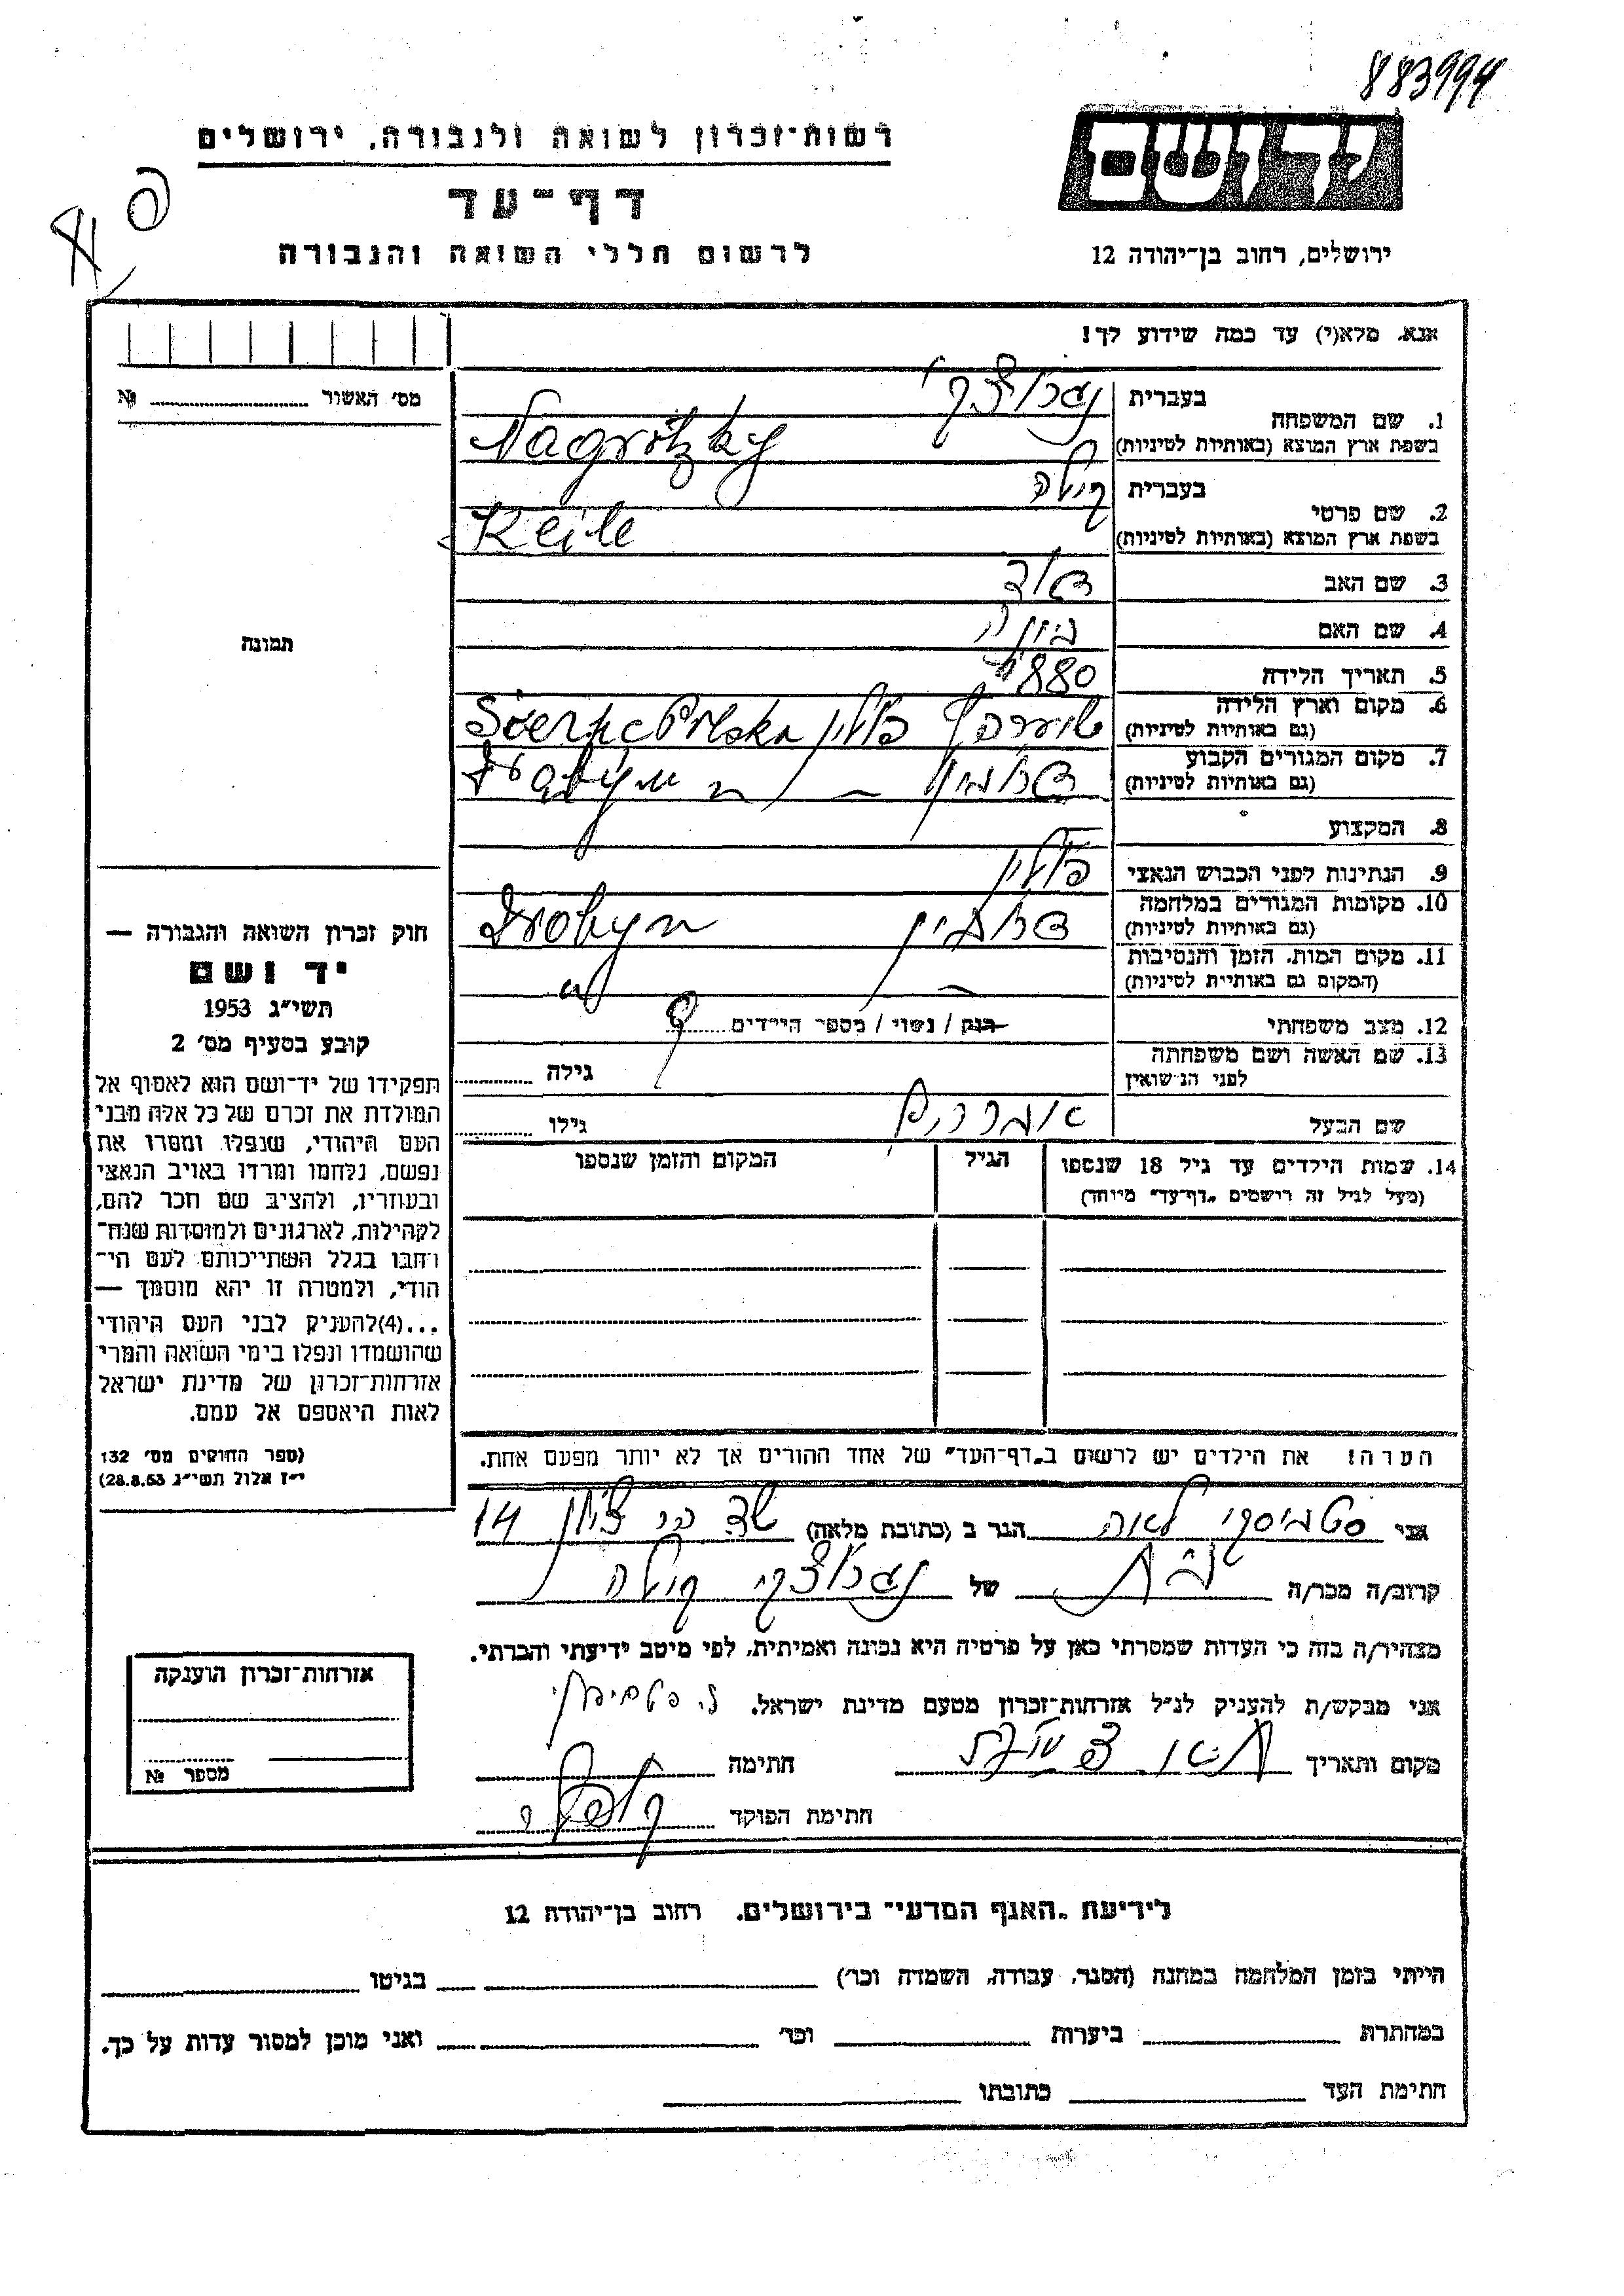 883994
יד ושם
רשות־זכרון לשואה ולגבורה, ירושלים
דף־עד
לרשום חללי השואה והגבורה
ירושלים, רחוב בן־יהודה 12
אנא, מלא(י) עד כמה שידוע לך!
מס' האשור № 
תמונה
1. שם המשפחה בעברית נגרוצקי
בשפת ארץ המוצא (באותיות לטיניות) Nagrotzky
2. שם פרטי בעברית קיילה
בשפת ארץ המוצא (באותיות לטיניות) Keile
3. שם האב דוד
4. שם האם
5. תאריך הלידה 1880
6. מקום וארץ הלידה (גם באותיות לטיניות) פולין Polska
7. מקום המגורים הקבוע (גם באותיות לטיניות)
8. המקצוע
9. הנתינות לפני הכבוש הנאצי פולין
10. מקומות המגורים במלחמה (גם באותיות לטיניות) דרובין Drobyn
11. מקום המות, הזמן והנסיבות (המקום גם באותיות לטיניות)
12. מצב משפחתי רווק / נשוי / מספר הילדים 9
13. שם האשה ושם משפחתה לפני הנשואין גילה
שם הבעל גילו
14. שמות הילדים עד גיל 18 שנספו (מעל לגיל זה רושמים „דף־עד" מיוחד) הגיל המקום והזמן שנספו
הערה! את הילדים יש לרשום ב„דף־העד" של אחד ההורים אך לא יותר מפעם אחת.
חוק זכרון השואה והגבורה —
יד ושם
תשי"ג 1953
קובע בסעיף מס' 2
תפקידו של יד־ושם הוא לאסוף אל
המולדת את זכרם של כל אלה מבני
העם היהודי, שנפלו ומסרו את
נפשם, נלחמו ומרדו באויב הנאצי
ובעוזריו, ולהציב שם וזכר להם,
לקהילות, לארגונים ולמוסדות שנח־
רבו בגלל השתייכותם לעם הי־
הודי, ולמטרה זו יהא מוסמך —
...(4) להעניק לבני העם היהודי
שהושמדו ונפלו בימי השואה והמרי
אזרחות־זכרון של מדינת ישראל
לאות היאספם אל עמם.
(ספר החוקים מס' 132
י"ז אלול תשי"ג 28.8.53)
אני לאה הגר ב (כתובת מלאה) 14
קרוב/ה מכר/ה בת של נגרוצקי קיילה
מצהיר/ה בזה כי העדות שמסרתי כאן על פרטיה היא נכונה ואמיתית, לפי מיטב ידיעתי והכרתי.
אני מבקש/ת להעניק לנ"ל אזרחות־זכרון מטעם מדינת ישראל.
מקום ותאריך חתימה
חתימת הפוקד
אזרחות־זכרון הוענקה
מספר №
לידיעת „האגף המדעי" בירושלים, רחוב בן־יהודה 12
הייתי בזמן המלחמה במחנה (הסגר, עבודה, השמדה וכו') בגיטו
במחתרת ביערות וכו' ואני מוכן למסור עדות על כך.
חתימת העד כתובתו